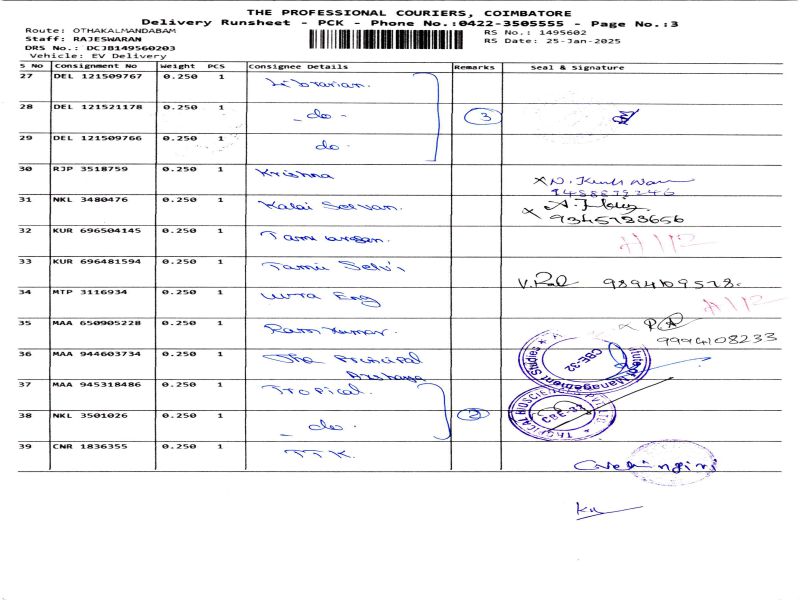 THE PROFESSIONAL COURIERS, COIMBATORE
Delivery Runsheet - PCK - Phone No.:0422-3505555 - Page No.:3
Route: OTHAKALMANDABAM
Staff: RAJESWARAN
DRS No.: DCJB149560203
Vehicle: EV Delivery
RS No.: 1495602
RS Date: 25-Jan-2025
S No Consignment No Weight PCS Consignee Details Remarks Seal & Signature
27 DEL 121509767 0.250 1 Librarian.
28 DEL 121521178 0.250 1 - do - 3
29 DEL 121509766 0.250 1 do -
30 RJP 3518759 0.250 1 Krishna
31 NKL 3480476 0.250 1 Kalai Selvan. 9345783656
32 KUR 696504145 0.250 1
33 KUR 696481594 0.250 1 Tamil Selvi
V. 9894109578.
34 MTP 3116934 0.250 1 Eng
35 MAA 650905228 0.250 1 Ram Kumar.
9994108233
36 MAA 944603734 0.250 1 The Principal
CBE-32
Management Studies
37 MAA 945318486 0.250 1 Tropical.
38 NKL 3501026 0.250 1 - do - 2
TROPICAL BIOSCIENCES PVT LTD
CBE-32
39 CNR 1836355 0.250 1 TTK.